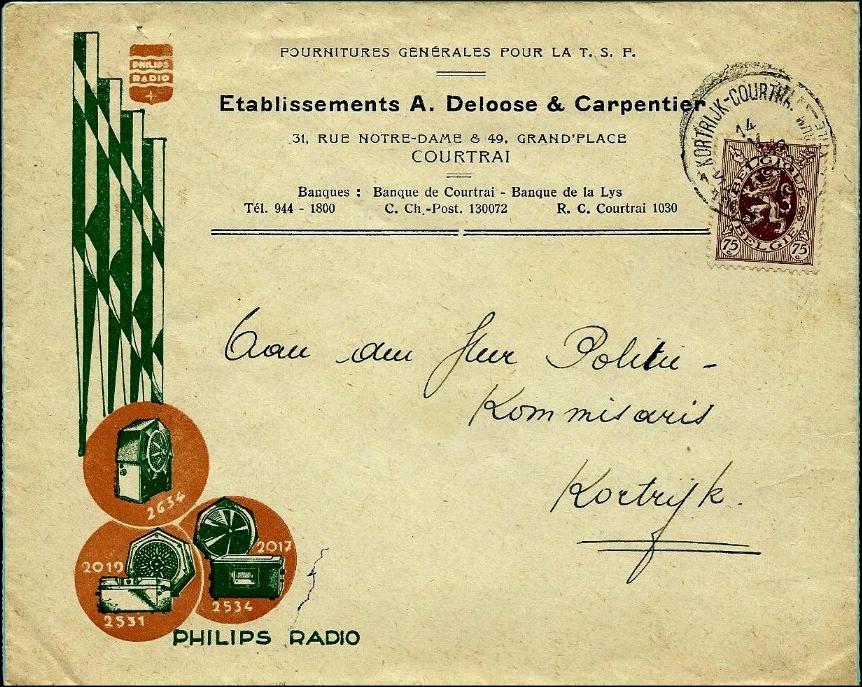 PHILIPS
RADIO
FOURNITURES GÉNÉRALES POUR LA T. S. F.
Etablissements A. Deloose & Carpentier
31, RUE NOTRE-DAME & 49, GRAND'PLACE
COURTRAI
Banques : Banque de Courtrai - Banque de la Lys
Tél. 944 - 1800 C. Ch.-Post. 130072 R. C. Courtrai 1030
KORTRIJK-COURTRAI
14
BELGIQUE
BELGIË
75 75
Aan den Heer Politie -
Kommisaris
Kortrijk.
2634
2019
2017
2531
2534
PHILIPS RADIO